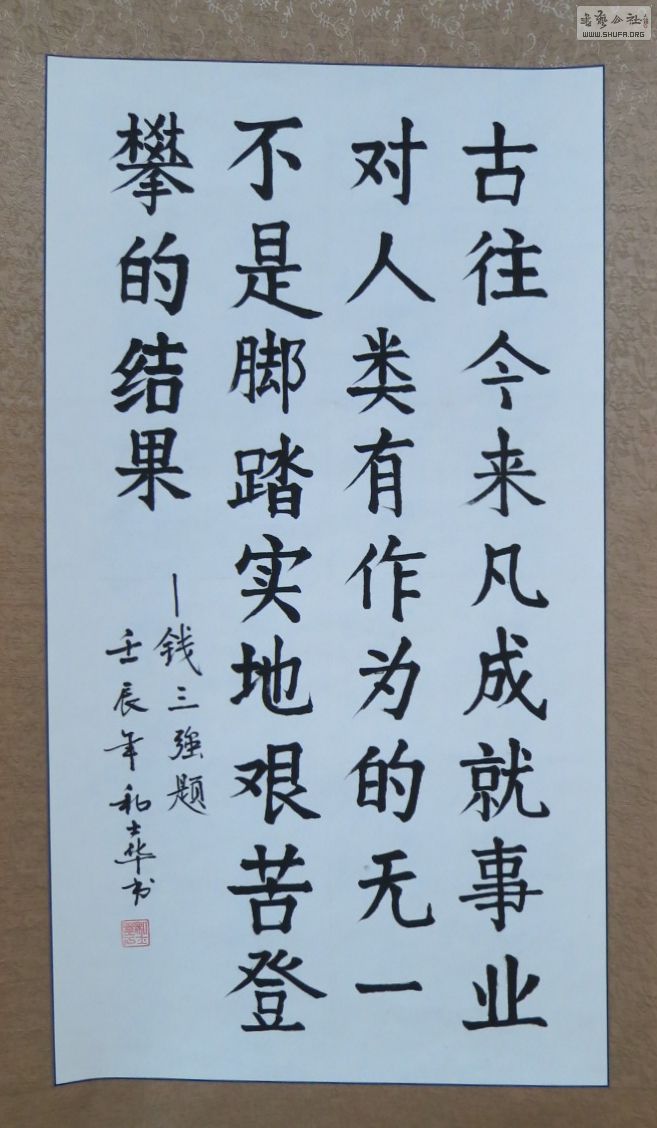 古往今来凡成就事业
对人类有作为的无一
不是脚踏实地艰苦登
攀的结果
—钱三强题
壬辰年和士华书
书艺公社
WWW.SHUFA.ORG